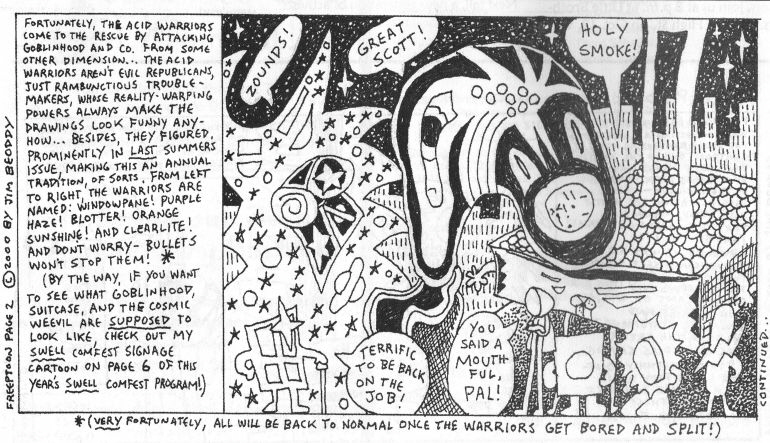 FORTUNATELY, THE ACID WARRIORS
COME TO THE RESCUE BY ATTACKING
GOBLINHOOD AND CO. FROM SOME
OTHER DIMENSION... THE ACID
WARRIORS AREN'T EVIL REPUBLICANS,
JUST RAMBUNCTIOUS TROUBLE-
MAKERS, WHOSE REALITY-WARPING
POWERS ALWAYS MAKE THE
DRAWINGS LOOK FUNNY ANY-
HOW... BESIDES, THEY FIGURED
PROMINENTLY IN LAST SUMMERS
ISSUE, MAKING THIS AN ANNUAL
TRADITION, OF SORTS. FROM LEFT
TO RIGHT, THE WARRIORS ARE
NAMED: WINDOWPANE! PURPLE
HAZE! BLOTTER! ORANGE
SUNSHINE! AND CLEARLITE!
AND DON'T WORRY- BULLETS
WON'T STOP THEM! *
(BY THE WAY, IF YOU WANT
TO SEE WHAT GOBLINHOOD,
SUITCASE, AND THE COSMIC
WEEVIL ARE SUPPOSED TO
LOOK LIKE, CHECK OUT MY
SWELL COMFEST SIGNAGE
CARTOON ON PAGE 6 OF THIS
YEAR'S SWELL COMFEST PROGRAM!)
FREEPTOON PAGE 2 ©2000 BY JIM BEODDY
ZOUNDS!
GREAT
SCOTT!
HOLY
SMOKE!
TERRIFIC
TO BE BACK
ON THE
JOB!
YOU
SAID A
MOUTH-
FUL,
PAL!
CONTINUED..
*(VERY FORTUNATELY, ALL WILL BE BACK TO NORMAL ONCE THE WARRIORS GET BORED AND SPLIT!)